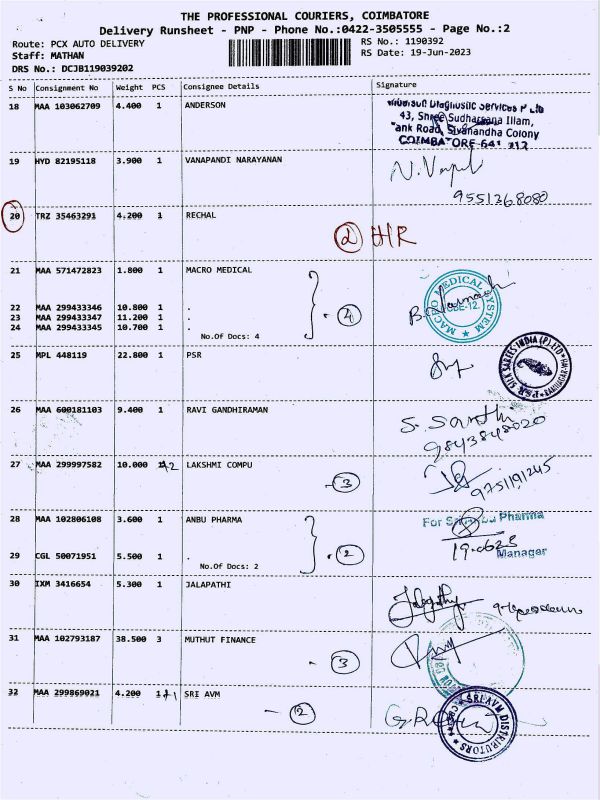 THE PROFESSIONAL COURIERS, COIMBATORE
Delivery Runsheet - PNP - Phone No.:0422-3505555 - Page No.:2
Route: PCX AUTO DELIVERY
RS No.: 1190392
Staff: MATHAN
RS Date: 19-Jun-2023
DRS No.: DCJB119039202
S No Consignment No Weight PCS Consignee Details Signature
18 MAA 103062709 4.400 1 ANDERSON
Diagnostic Services P Ltd
43, Shree Sudharsana Illam,
Tank Road, Sivanandha Colony
COIMBATORE 641 012
19 HYD 82195118 3.900 1 VANAPANDI NARAYANAN
9551268080
20 TRZ 35463291 4.200 1 RECHAL
2 HR
21 MAA 571472823 1.800 1 MACRO MEDICAL
22 MAA 299433346 10.800 1 .
23 MAA 299433347 11.200 1 .
24 MAA 299433345 10.700 1 .
- 4
No.Of Docs: 4
MACRO MEDICAL SYSTEM
CBE-12.
25 MPL 448119 22.800 1 PSR
PSR SILK SAREES INDIA (P) LTD
26 MAA 600181103 9.400 1 RAVI GANDHIRAMAN
S. Santhi
9843848020
27 MAA 299997582 10.000 12 LAKSHMI COMPU
- 3
9751191245
28 MAA 102806108 3.600 1 ANBU PHARMA
For Sri Anbu Pharma
29 CGL 50071951 5.500 1 .
- 2
No.Of Docs: 2
19.0623
Manager
30 IXM 3416654 5.300 1 JALAPATHI
Jalapathy
31 MAA 102793187 38.500 3 MUTHUT FINANCE
- 3
32 MAA 299869021 4.200 1 SRI AVM
- 2
SRI AVM DISTRIBUTORS